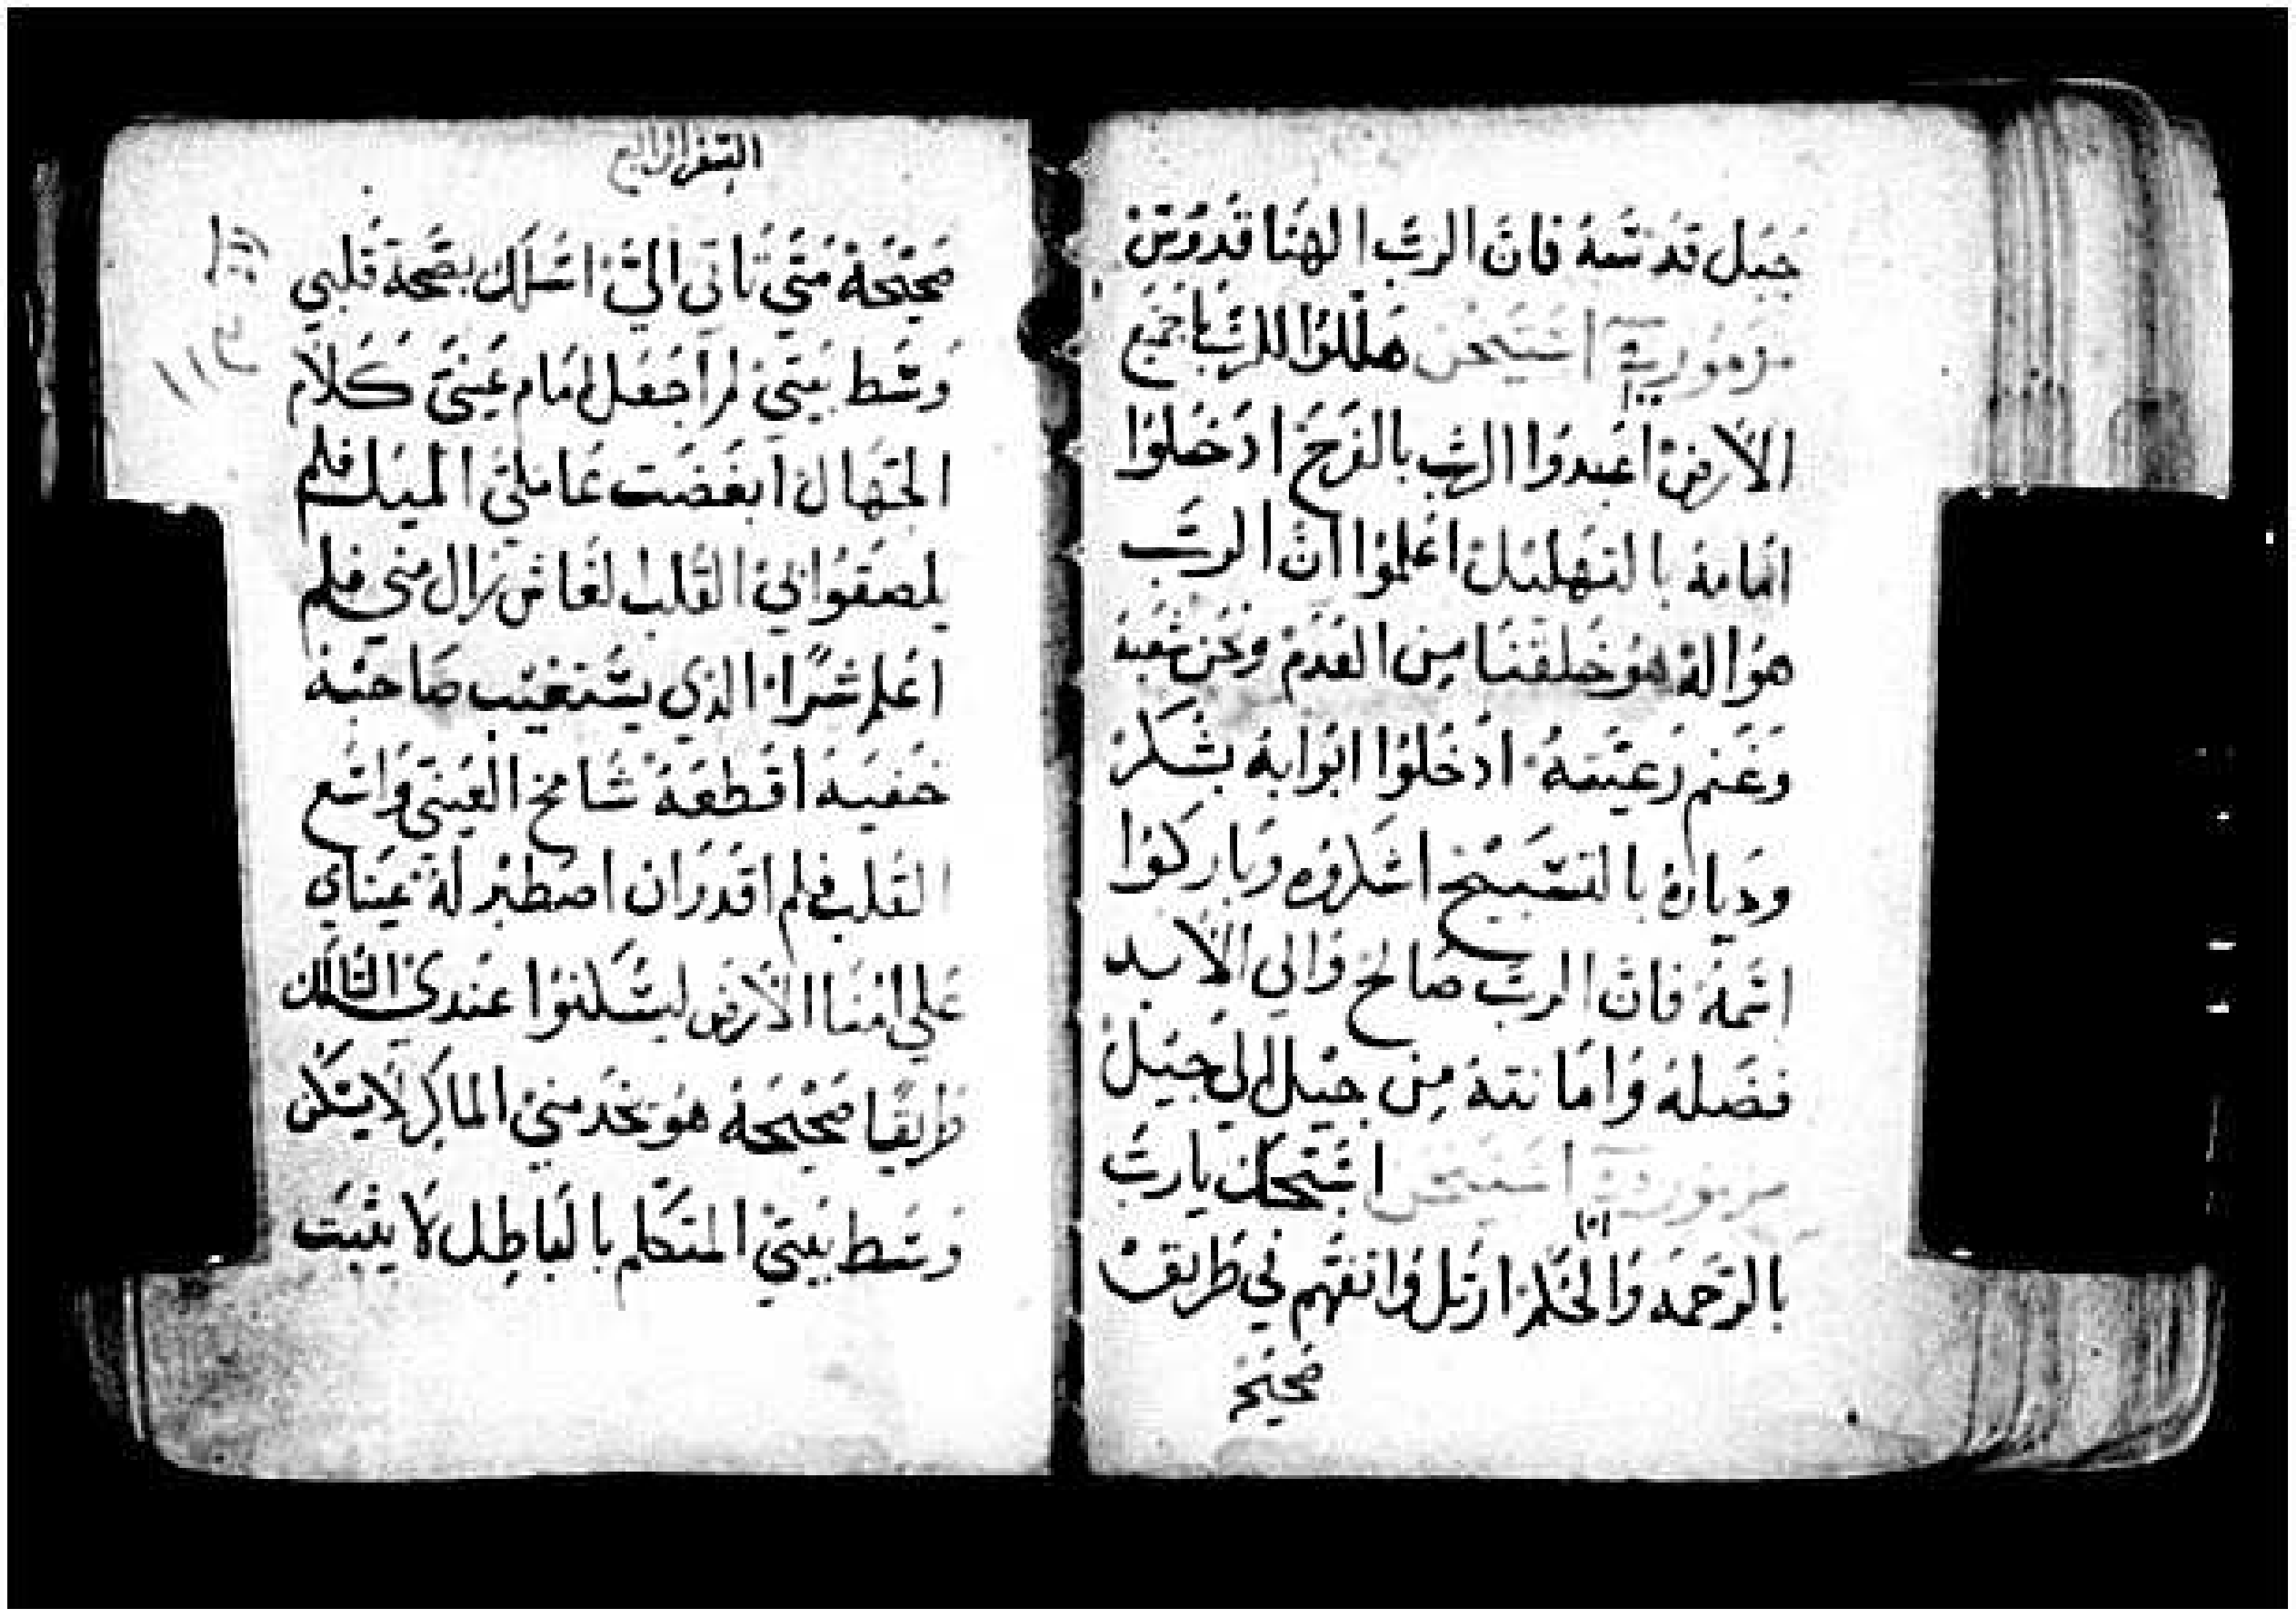 جبل قدسه فان الرب الهنا قدوس
مزمور استيخن هللوا للرب يا جميع
الارض اعبدوا الرب بالفرح ادخلوا
امامه بالتهليل اعلموا ان الرب
هو اله هو خلقنا من العدم ونحن شعبه
وغنم رعيته ادخلوا ابوابه بشكر
ودياره بالتسبيح اشكروه وباركوا
اسمه فان الرب صالح والي الابد
فضله وامانته من جيل الي جيل
استيخن اسبحك يا رب
بالرحمه والحكم ارتل واتفهم في طريق
صحيحه
السفر الرابع
صحيحة متي تاتي الي اسلك بصحة قلبي
وسط بيتي لم اجعل امام عيني كلام
الجهال ابغضت عاملي الميل فلم
يلصقوا بي القلب لغاش يزال مني فلم
اعلم شرا الذي يستغيب صاحبه
خفيه اقطعه شامخ العيني واسع
القلب فلم اقدر ان اصطبر له عيناي
علي امنا الارض ليسكنوا عندي السالك
طريقا صحيحه هو يخدمني الماكر لا يسكن
وسط بيتي المتكلم بالباطل لا يثبت